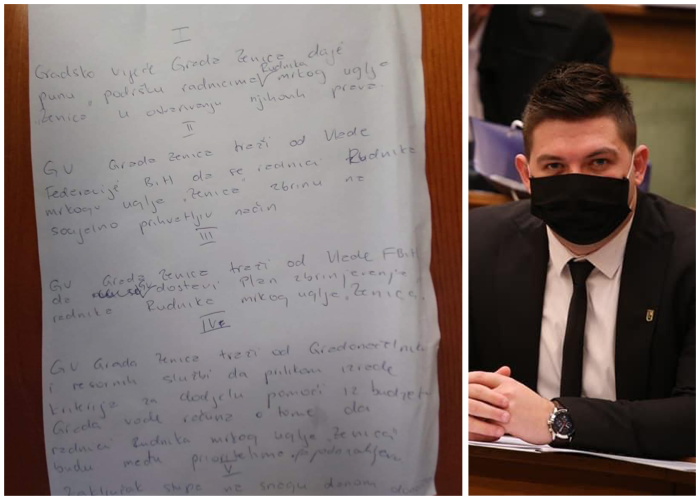 I
Gradsko vijeće Grada Zenice daje
punu podršku radnicima Rudnika mrkog uglja
"Zenica" u ostvarivanju njihovih prava.
II
GV Grada Zenica traži od Vlade
Federacije BiH da se radnici Rudnika
mrkog uglja "Zenica" zbrinu na
socijalno prihvatljiv način
III
GV Grada Zenice traži od Vlade FBiH
da dostavi Plan zbrinjavanja
radnika Rudnika mrkog uglja "Zenica".
IV
GV Grada Zenica traži od Gradonačelnika
i resornih službi da prilikom izrade
kriterija za dodjelu pomoći iz budžeta
Grada vode računa o tome da
radnici Rudnika mrkog uglja "Zenica"
budu među prioritetima
V
Zaključak stupa na snagu danom